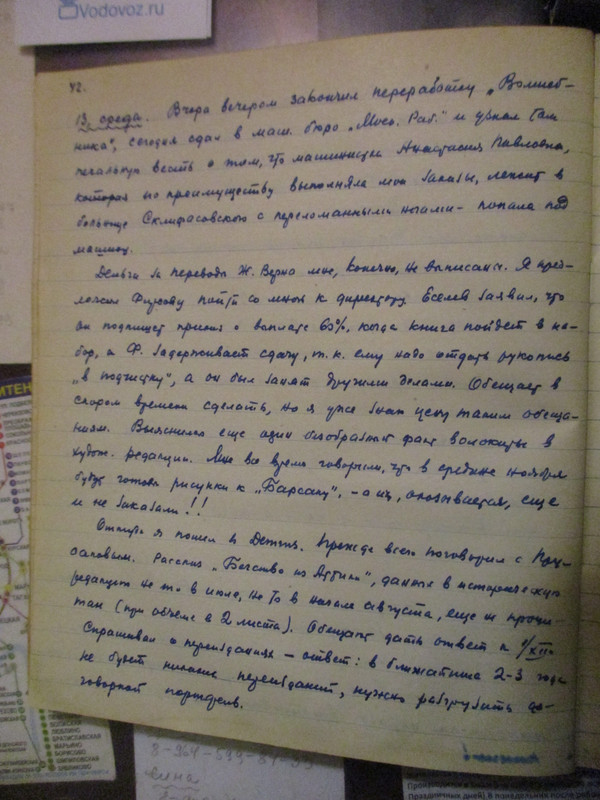 Vodovoz.ru
42.
13 среда. Вчера вечером закончил переработку „Волшеб-
ника“, сегодня сдал в маш. бюро „Моск. Раб.“ и узнал там
печальную весть о том, что машинистка Анастасия Павловна,
которая по преимуществу выполняла мои заказы, лежит в
больнице Склифасовского с переломанными ногами - попала под
машину.
Деньги за переводы Ж. Верна мне, конечно, не выписаны. Я пред-
ложил пойти со мной к директору. Еселев заявил, что
он подпишет приказ о выплате 60%, когда книга пойдет в на-
бор, а Ф. задерживает сдачу, т.к. ему надо отдать рукопись
„в подчистку“, а он был занят другими делами. Обещает в
скором времени сделать, но я уже знаю цену таким обеща-
ниям. Выяснился еще один безобразный факт волокиты в
худож. редакции. Мне все время говорили, что в средине ноября
будут готовы рисунки к „Барсаку“, - а их, оказывается, еще
и не заказали!!
Оттуда я пошел в Детгиз. Прежде всего поговорил с
Рассказ „Бегство из Аттики“, данный в историческую
редакцию не то в июле, не то в начале августа, еще не прочи-
тан (при объеме в 2 листа). Обещают дать ответ к 1/XII.
Спрашивал о переизданиях - ответ: в ближайшие 2-3 года
не будет никаких переизданий, нужно разгрузить до-
говорной портфель.
БРАТИСЛАВСКАЯ
МАРЬИНО
БОРИСОВО
ШИПИЛОВСКАЯ